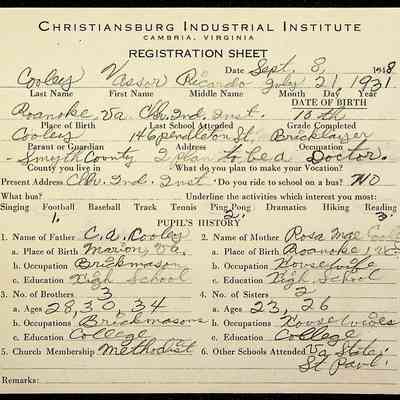 CHRISTIANSBURG INDUSTRIAL INSTITUTE
CAMBRIA, VIRGINIA
REGISTRATION SHEET
Date Sept. 8, 1948
Cooley Vassor Ricardo July 21 1931
Last Name First Name Middle Name Month Day Year
DATE OF BIRTH
Roanoke, Va. Chr. Ind. Inst. 10th
Place of Birth Last School Attended Grade Completed
Cooley 146 pendleton St. Bricklayer
Parent or Guardian Address Occupation
Smyth County I plan to be a Doctor.
County you live in What do you plan to make your Vocation?
Present Address Chr. Ind. Inst. Do you ride to school on a bus? NO
What bus? Underline the activities which interest you most:
Singing Football Baseball Track Tennis Ping Pong Dramatics Hiking Reading
1. 2. 3.
PUPIL'S HISTORY
1. Name of Father C.A. Cooley 2. Name of Mother Rosa Mae Cooley
a. Place of Birth Marion, Va. a. Place of Birth Roanoke, Va.
b. Occupation Brickmason b. Occupation Housewife
c. Education High School c. Education High School
3. No. of Brothers 3 4. No. of Sisters 2
a. Ages 28, 30, 34 a. Ages 23, 26
b. Occupations Brickmasons b. Occupations Housewives
c. Education College c. Education College
5. Church Membership Methodist 6. Other Schools Attended Va State,
St Paul.
Remarks: